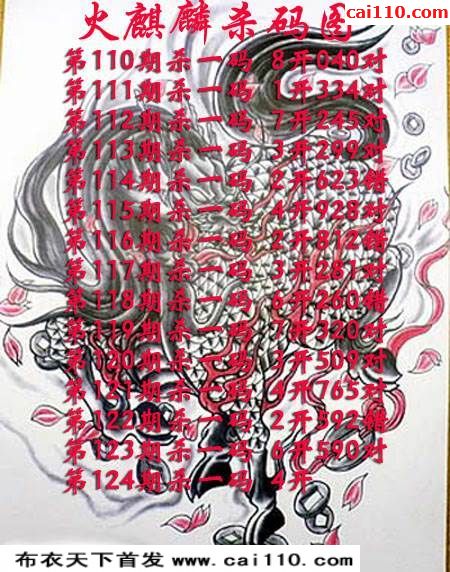 cai110.com
火麒麟杀码图
第110期杀一码 8开040对
第111期杀一码 1开334对
第112期杀一码 7开245对
第113期杀一码 3开299对
第114期杀一码 2开623错
第115期杀一码 4开928对
第116期杀一码 2开812错
第117期杀一码 3开281对
第118期杀一码 6开260错
第119期杀一码 7开320对
第120期杀一码 3开509对
第121期杀一码 4开765对
第122期杀一码 2开592错
第123期杀一码 6开590对
第124期杀一码 4开
布衣天下首发 www.cai110.com